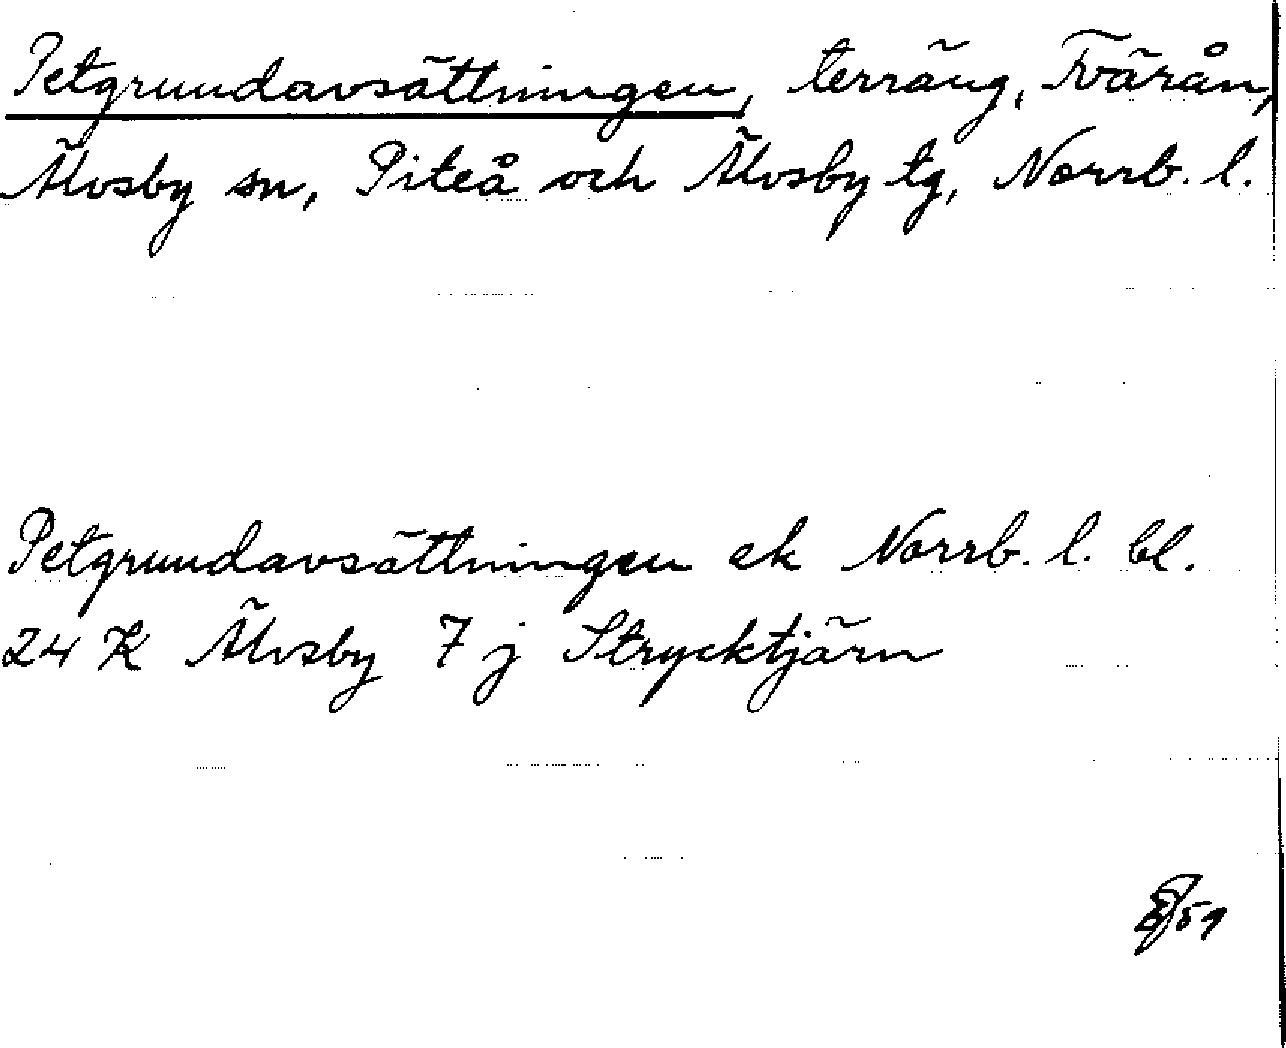 Petgrundavsättningen, terräng, Tvärån,
Älvsby sn, Piteå och Älvsby tg, Norrb. l.
Petgrundavsättningen ek Norrb. l. bl.
24 K Älvsby 7 j Strycktjärn
59